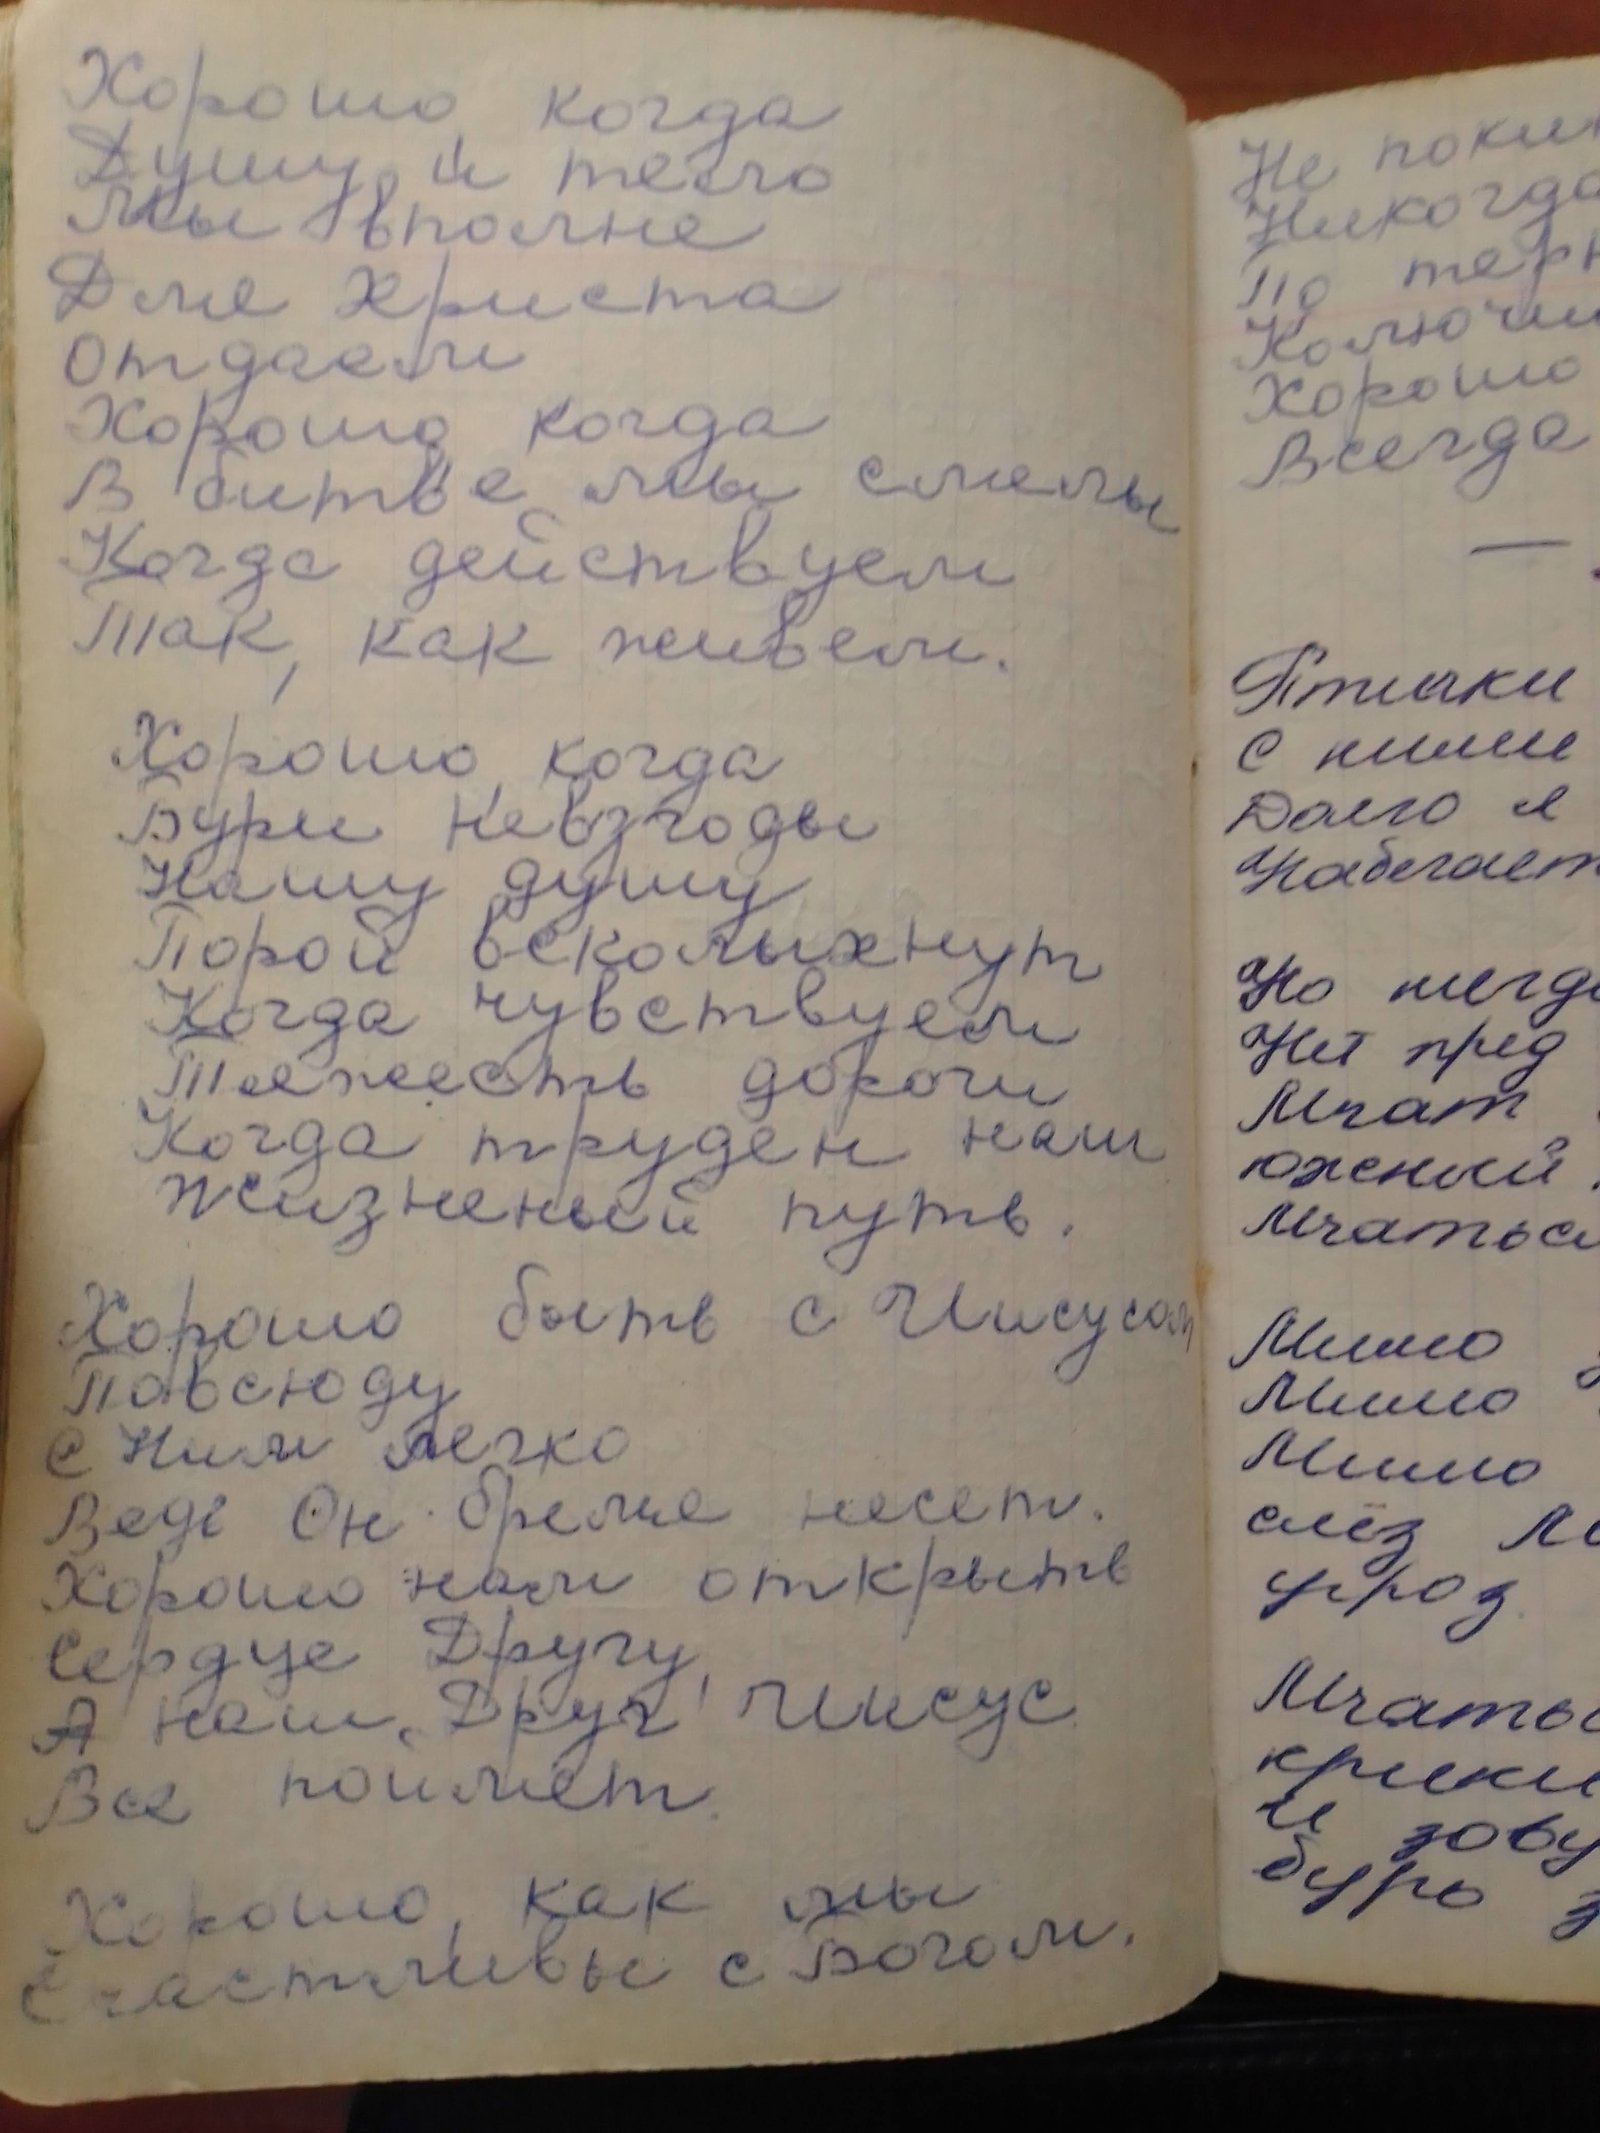 Хорошо, когда
Душу и тело
Мы вполне
Для Христа
Отдаем
Хорошо, когда
В битве мы смелы
Когда действуем
Так, как живем.
Хорошо, когда
Бури невзгоды
Нашу душу
Порой всколыхнут
Когда чувствуем
Тяжесть дороги
Когда труден наш
Жизненый путь.
Хорошо быть с Иисусом
Повсюду
С Ним легко
Ведь Он бремя несет.
Хорошо нам открыть
Сердце Другу,
А наш Друг Иисус
Все поймет.
Хорошо, как мы
Счастливы с Богом.
Не
Никогда
По
Хорошо
Всегда
—
Птички
С ними
Долго я
Но
Нет пред
Мчат
южный
Мимо
Мимо
Мимо
слёз
угроз.
и
бурь